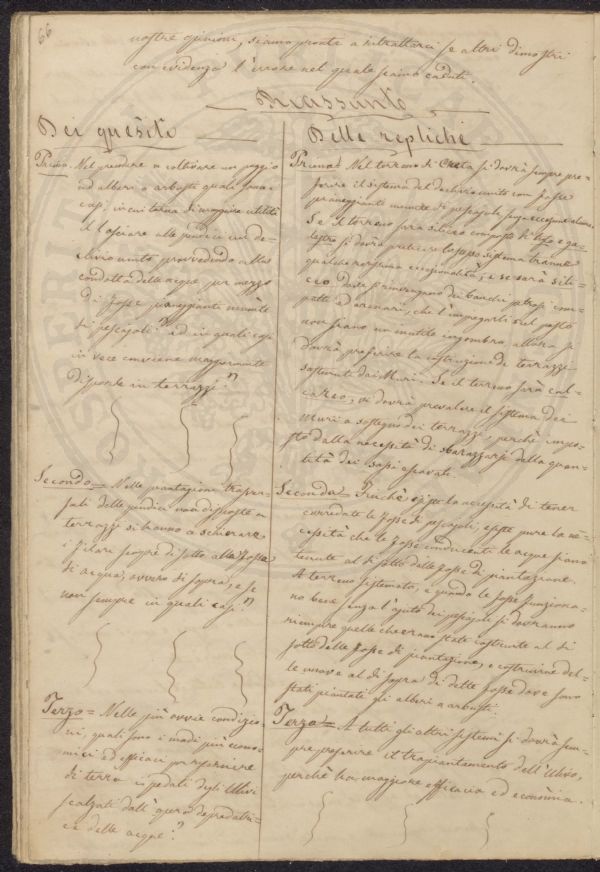 66
nostre opinioni, siamo pronte a ritrattarci se altri dimostri
con evidenza l'errore nel quale siamo caduti.
Riassunto
Dei quesiti
Primo = Nel prendere a coltivare un poggio
ad alberi o arbusti quali sono i
casi in cui torna di maggiore utilità
il lasciare alle pendici un de-
clivio unito, provvedendo alla
condotta delle acque per mezzo
di fosse pianeggianti munite
di pescajoli? ed in quali casi
in vece conviene maggiormente
disporle in terrazzi?
Secondo = Nelle piantagioni trasver-
sali delle pendici non disposte a
terrazzi si hanno a schierare
i filari sempre di sotto alle fosse
di acqua, ovvero di sopra, e se
non sempre in quali casi?
Terzo = Nelle più ovvie condizio-
ni, quali sono i modi più econo-
mici ed efficaci per rifornire
di terra i pedali degli Ulivi
scalzati dall'opera depredatri-
ce delle acque?
Delle repliche
Prima = Nel terreno di Creta si dovrà sempre pre-
ferire il sistema del declivio unito con fosse
pianeggianti munite di pescajoli senza eccezione alcuna.
Se il terreno sarà siliceo composto di tufo e ga-
lestro si dovrà praticare lo stesso sistema tranne
qualche rarissima eccezionalità, e se sarà sili-
ceo dove si rinvengano dei banchi petrosi com-
patti ed arenari, che l'impiegarli sul posto
non siano un inutile ingombro, allora si
dovrà preferire la costruzione di terrazzi
sostenuti dai Muri. Se il terreno sarà cal-
careo, vi dovrà prevalere il sistema dei
Muri a sostegno dei terrazzi, perchè impo-
sto dalla necessità di sbarazzarsi della quan-
tità dei sassi escavati.
Seconda = Finchè esiste la necessità di tener
corredate le fosse di pescajoli, esiste pure la ne-
cessità che le fosse conducenti le acque siano
tenute al di sotto delle fosse di piantagione.
A terreno sistemato, e quando le fosse funziona-
no bene senza l'ajuto dei pescajoli si dovranno
riempire quelle che erano state costruite al di
sotto delle fosse di piantagione, e costruirne del-
le nuove al di sopra di dette fosse dove sono
stati piantati gli alberi o arbusti.
Terza = A tutti gli altri sistemi si dovrà sem-
pre preferire il trapiantamento dell'Ulivo,
perchè ha maggiore efficacia ed economia.